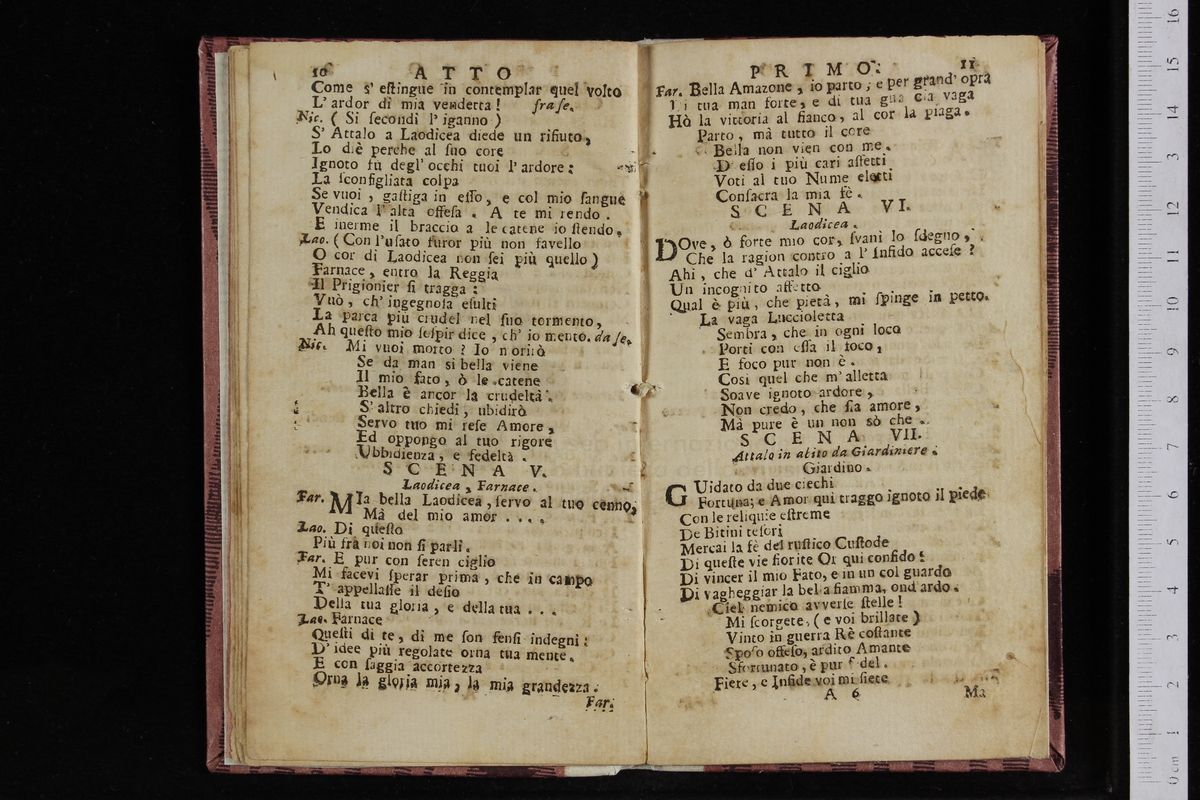 10 ATTO
Come s' eſtingue in contemplar quel volto
L' ardor di mia vendetta! fra ſe.
Nic. ( Si ſecondi l' iganno )
S' Attalo a Laodicea diede un rifiuto,
Lo diè perche al ſuo core
Ignoto fù degl' occhi tuoi l' ardore:
La ſconſigliata colpa
Se vuoi, gaſtiga in eſſo, e col mio ſangue
Vendica l' alta offeſa. A te mi rendo.
E inerme il braccio a le catene io ſtendo.
Lao. (Con l'uſato furor più non favello
O cor di Laodicea non ſei più quello)
Farnace, entro la Reggia
Il Prigionier ſi tragga:
Vuò, ch' ingegnoſa eſulti
La parca più crudel nel ſuo tormento,
Ah queſto mio ſoſpir dice, ch' io mento. da ſe.
Nic. Mi vuoi morto? Io morirò
Se da man si bella viene
Il mio fato, ò le catene
Bella è ancor la crudeltà.
S' altro chiedi, ubidirò
Servo tuo mi reſe Amore,
Ed oppongo al tuo rigore
Ubbidienza, e fedeltà.
SCENA V.
Laodicea, Farnace.
Far. MIa bella Laodicea, ſervo al tuo cenno,
Mà del mio amor ....
Lao. Di queſto
Più frà noi non ſi parli.
Far. E pur con ſeren ciglio
Mi facevi ſperar prima, che in campo
T' appellaſſe il deſio
Della tua gloria, e della tua ...
Lao. Farnace
Queſti di te, di me ſon ſenſi indegni:
D' idee più regolate orna tua mente.
E con ſaggia accortezza
Orna la gloria mia, la mia grandezza.
Far.
PRIMO. 11
Far. Bella Amazone, io parto; e per grand' opra
Di tua man forte, e di tua vaga
Hò la vittoria al fianco, al cor la piaga.
Parto, mà tutto il core
Bella non vien con me.
D' eſſo i più cari affetti
Voti al tuo Nume eletti
Conſacra la mia fè.
SCENA VI.
Laodicea.
DOve, ò forte mio cor, ſvani lo ſdegno,
Che la ragion contro a l' Infido acceſe?
Ahi, che d' Attalo il ciglio
Un incognito affetto
Qual è più, che pietà, mi ſpinge in petto.
La vaga Luccioletta
Sembra, che in ogni loco
Porti con eſſa il foco,
E foco pur non è.
Cosi quel che m' alletta
Soave ignoto ardore,
Non credo, che ſia amore,
Mà pure è un non sò che.
SCENA VII.
Attalo in abito da Giardiniere.
Giardino.
GUidato da due ciechi
Fortuna; e Amor qui traggo ignoto il piede
Con le reliquie eſtreme
De Bitini teſori
Mercai la fè del ruſtico Cuſtode
Di queſte vie fiorite Or qui confido:
Di vincer il mio Fato, e in un col guardo
Di vagheggiar la bella fiamma, ond' ardo.
Ciel nemico avverſe ſtelle!
Mi ſcorgete, (e voi brillate)
Vinto in guerra Rè coſtante
Spoſo offeſo, ardito Amante
Sfortunato, è pur del.
Fiere, e Infide voi mi ſiete
A 6 Ma